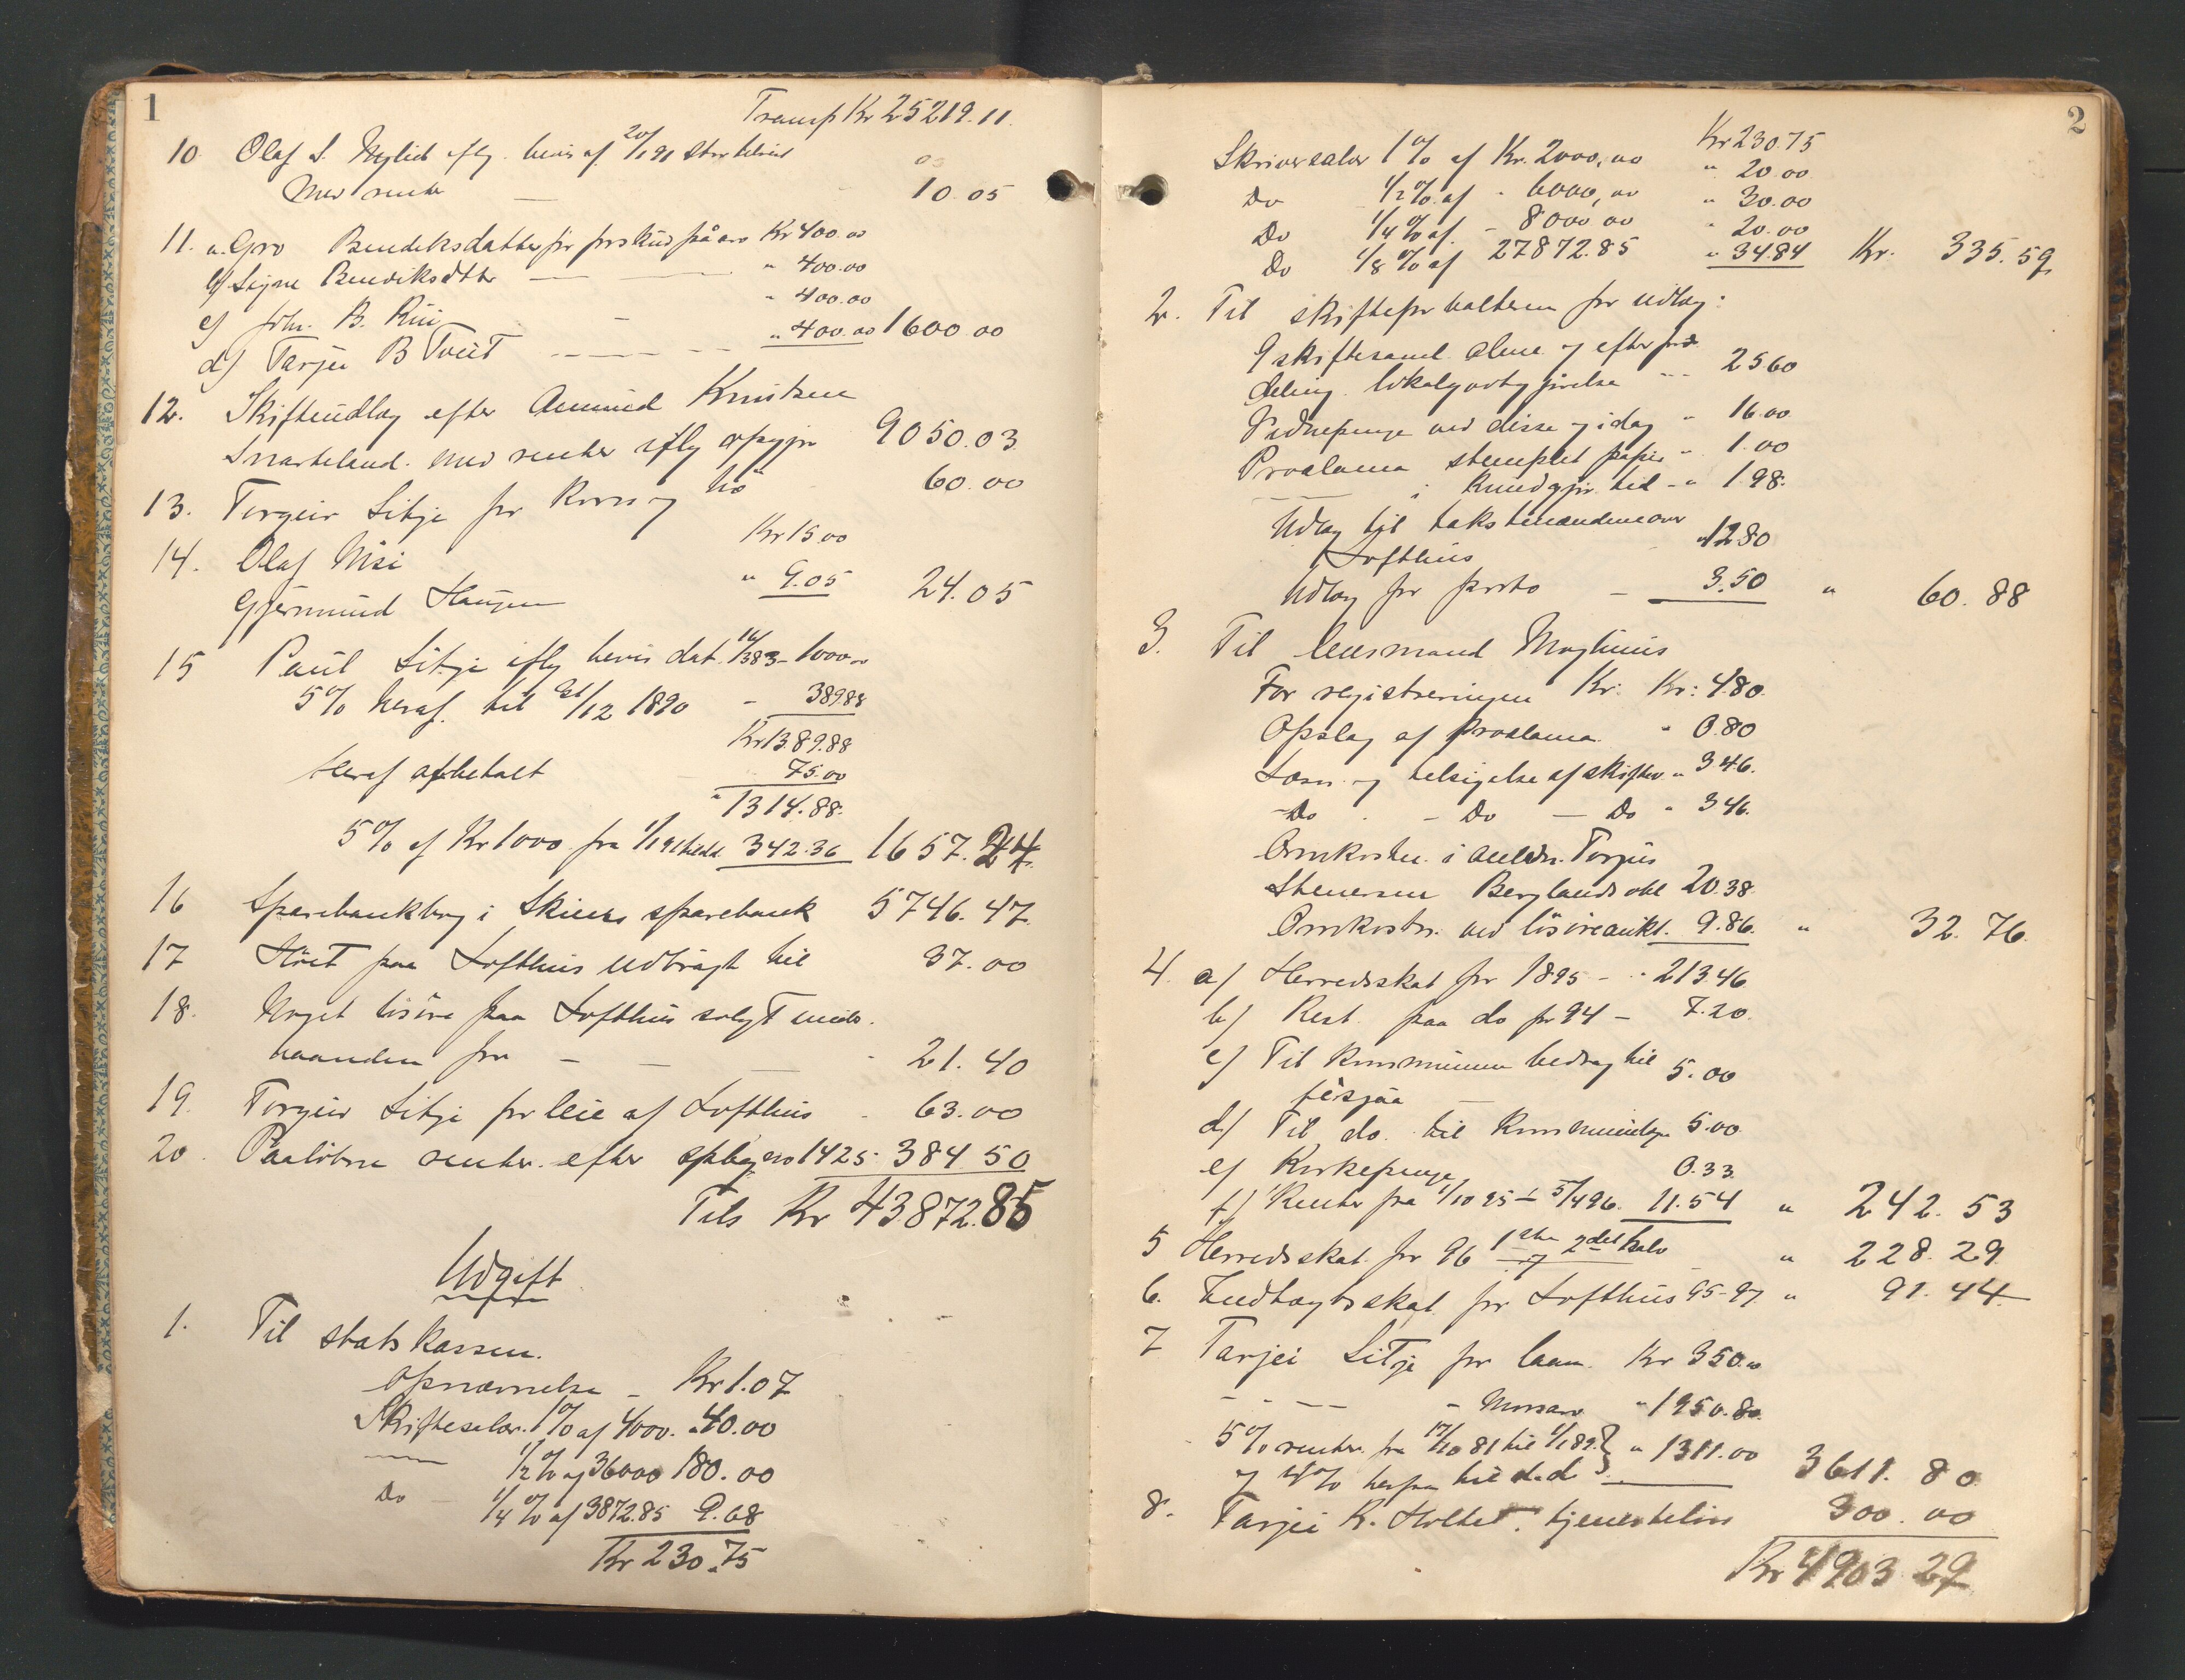 1
Transp Kr 25219.11.
10 Olaf S. Nylid iflg. bevis af 20/1 91 stor
med renter — 10.05
11. a. Gro Bendiksdatter for forskud på arv Kr 400.00
b) Signe Bendiksdtter — — " 400.00
c) Joh. B. Rui — " 400.00
d) Tarjei B Tveit — — — " 400.00 1600 00
12. Skifteudlæg efter Aamund Knutsen
Snarteland. med renter iflg opgjør 9050.03
13. Torgeir Litjé for korn og hö 60.00
14. Olaf Kr 15.00
Gjermund Haugen " 9.05 24.05
15 Paul Litjé iflg bevis dat. 14/3 83 - 1000.00
5% heraf til 31/12 1890 - 389.88
Kr 1389.88
Heraf afbetalt 75.00
" 1314.88.
5% af Kr 1000 fra 1/1 91 342.36 1657.24
16 Sparebankbog i Skiens sparebank 5746.47
17 Höet paa Lofthus udbragt til 37.00
18. Noget lösöre paa Lofthus solgt under-
haanden for — — — - 21.40
19. Torgeir Litjé for leie af Lofthus - 63.00
20. Paalöbne renter efter spbg no 1425 - 384 50
Tils Kr 43872.85
Udgift
1. Til statskassen.
Opnævnelse - Kr 1.07
Skiftesalær. 1% af 4000. " 40.00
— 1/2 % af 36000 180.00
Do - 1/4 % af 3872.85 9.68
Kr 230.75
2
Kr 230.75
Skriversalær 1% af Kr. 2000,00 " 20.00
Do 1/2 % af - 6000,00 " 30.00
Do 1/4 % af - 8000 00 " 20.00
Do 1/8 % af 27872.85 " 34.84 Kr. 335.59
2. Til skifteforvalteren for udlæg:
9 skiftesaml. alene og efter for-
deling. lokalgodtgjörelse " 25.60
Vidnepenge ved disse og idag " 16.00
Proclama stemplet papir " 1.00
— — i Kundgjör. tid - " 1.98.
Udlæg til takstmændene over
Lofthus - " 12.80
Udlæg for porto - 3.50 " 60.88
3. Til lensmand Moglunis
For registreringen Kr: Kr: 4.80.
Opslag af Proclama. " 0.80
Læsn. og tilsigelse af skiftev. " 3.46.
- Do - Do — Do " 3.46.
Omkostn. i anledn. Torjus
Stenersen Berglands obl 20.38.
Omkostn. ved lösöreaukt. 9.86. " 32.76.
4. a) Herredsskat for 1895 - " 213.46
b) Rest paa do for 94 - 7.20.
c) Til Kommunen bidrag til
fésjaa — 5.00
d) Til do. til 5.00
e) Kirkepenge 0.33
f) Renter fra 1/10 95 - 5/4 96. 11.54 " 242.53
5 Herredsskat for 96 1ste og 2det halv " 228.29
6. Indtægtsskat for Lofthus 95-97 " 91.44
7 Tarjei Litjé for laan. Kr 350.00
- - — — - Morsarv " 1950.80
5% renter fra 17/10 81 til 1/1 89 } " 1311.00
og 4% herfra til d.d } — 3611.80
8. Tarjei K. Holtet. tjenestelön 300.00
Kr 4903 29